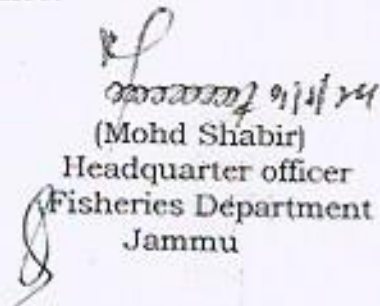 (Mohd Shabir)
Headquarter officer
Fisheries Department
Jammu